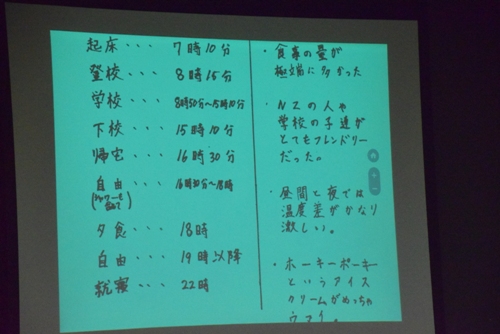 起床・・・ 7時10分
登校・・・ 8時15分
学校・・・ 8時50分〜15時10分
下校・・・ 15時10分
帰宅・・・ 16時30分
自由・・・ 16時30分〜18時
夕食・・・ 18時
自由・・・ 19時以降
就寝・・・ 22時
・食事の量が
極端に多かった
・NZの人や
学校の子達が
とてもフレンドリー
だった。
・昼間と夜では
温度差がかなり
激しい。
・ホーキーポーキー
というアイス
クリームがめっちゃ
ウマイ。